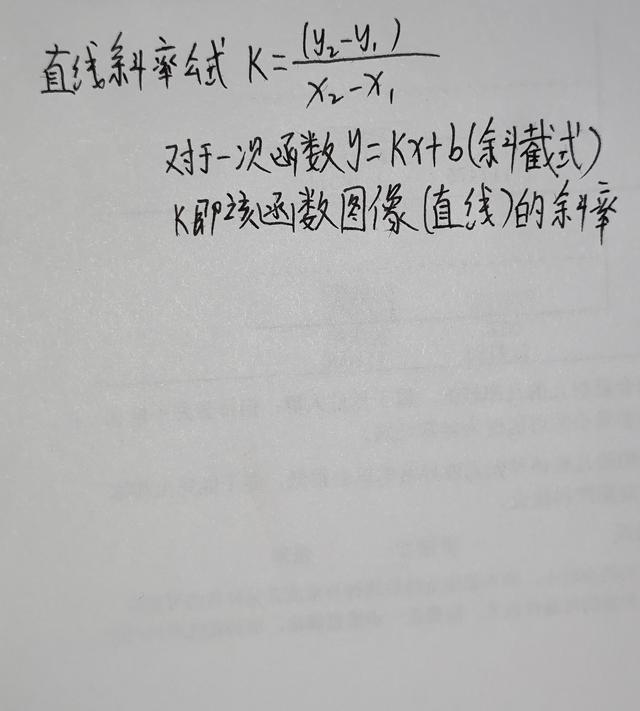 直线斜率公式 K=(y₂-y₁)/(x₂-x₁)
对于一次函数y=Kx+b(斜截式)
K即该函数图像(直线)的斜率